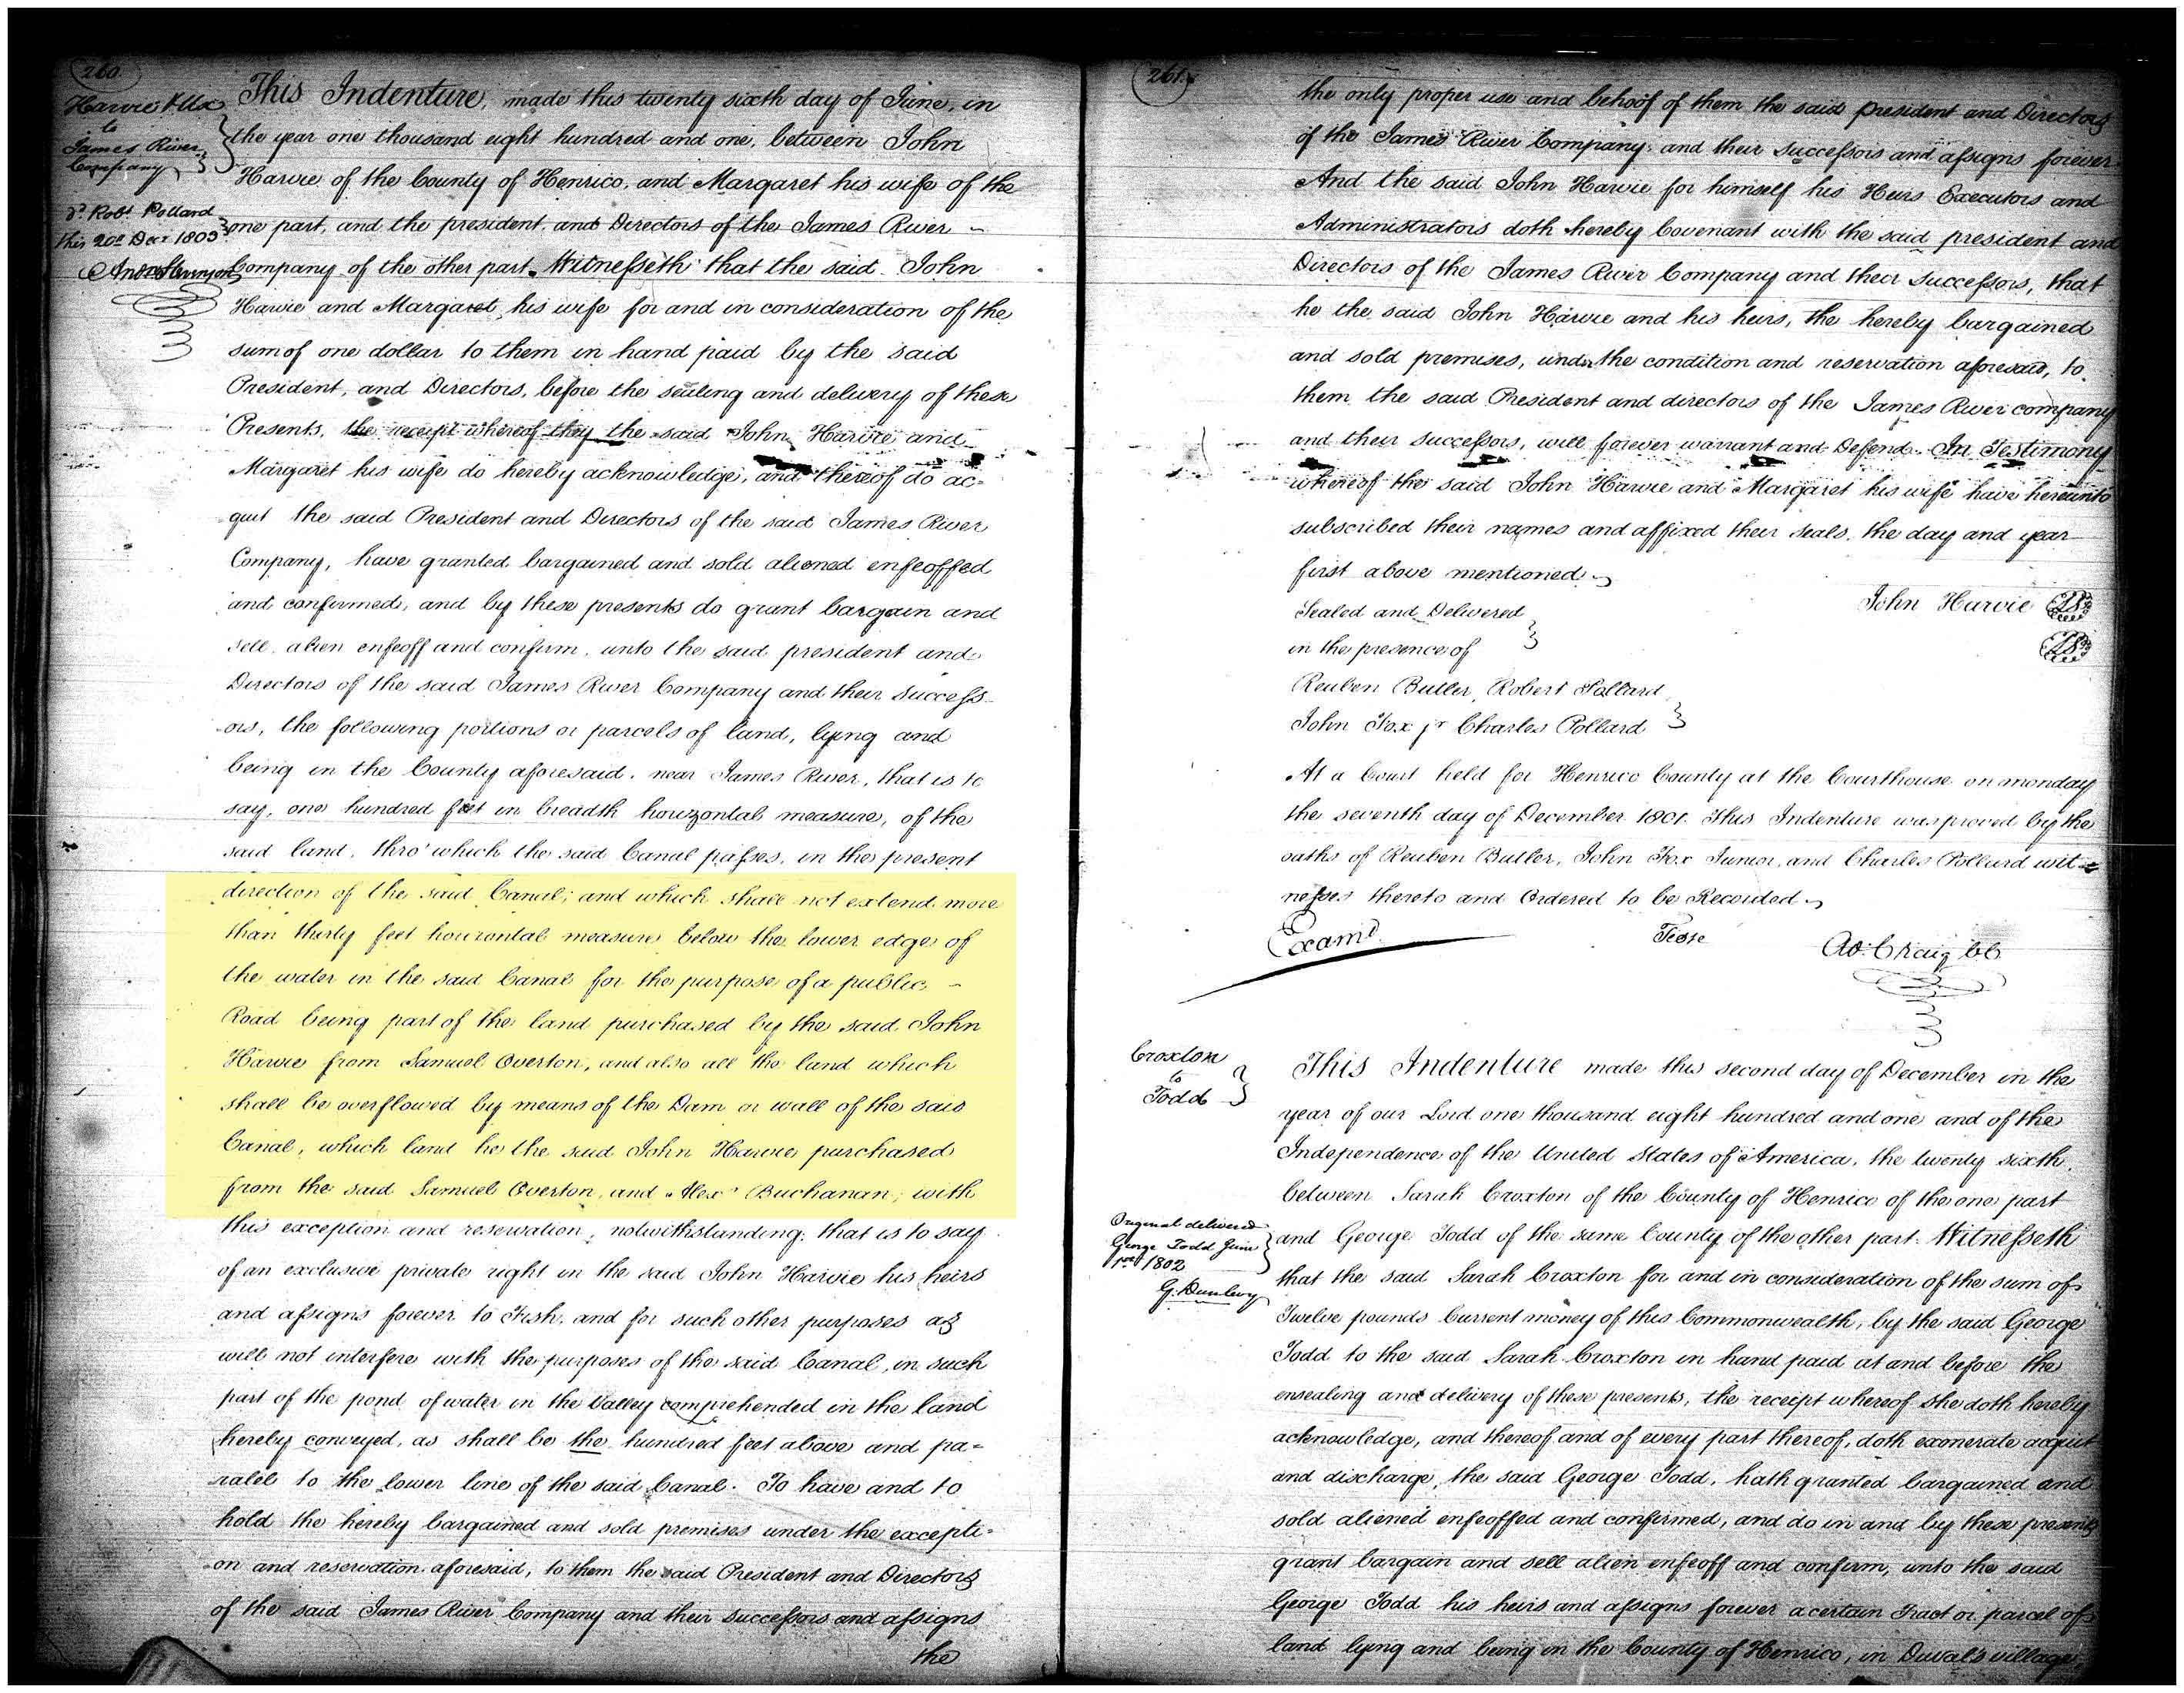 260.
Harvie & Ux
to
James River
Company
Dd. Robt. Pollard
this 20th Decr 1803
This Indenture, made this twenty sixth day of June, in
the year one thousand eight hundred and one, between John
Harvie of the County of Henrico, and Margaret his wife of the
one part, and the president and Directors of the James River
Company of the other part. Witnesseth that the said John
Harvie and Margaret, his wife for and in consideration of the
sum of one dollar to them in hand paid by the said
President, and Directors, before the sealing and delivery of these
Presents, the receipt whereof they the said John Harvie and
Margaret his wife do hereby acknowledge, and thereof do ac=
quit the said President and Directors of the said James River
Company, have granted bargained and sold aliened enfeoffed
and confirmed, and by these presents do grant bargain and
sell, alien enfeoff and confirm, unto the said president and
Directors of the said James River Company and their success-
ors, the following portions or parcels of land, lying and
being in the County aforesaid, near James River, that is to
say, one hundred feet in breadth horizontal measure, of the
said land, thro' which the said Canal passes, in the present
direction of the said Canal; and which shall not extend more
than thirty feet horizontal measure below the lower edge of
the water in the said Canal for the purpose of a public
Road being part of the land purchased by the said John
Harvie from Samuel Overton, and also all the land which
shall be overflowed by means of the Dam or wall of the said
Canal, which land he the said John Harvie purchased
from the said Samuel Overton, and Alexr Buchanan; with
this exception and reservation, notwithstanding; that is to say
of an exclusive private right in the said John Harvie his heirs
and assigns forever to Fish, and for such other purposes as
will not interfere with the purposes of the said Canal, in such
part of the pond of water in the Valley comprehended in the land
hereby conveyed, as shall be the hundred feet above and pa=
ralel to the lower line of the said Canal. To have and to
hold the hereby bargained and sold premises under the excepti=
on and reservation aforesaid, to them the said President and Directors
of the said James River Company and their successors and assigns
the
261.
the only proper use and behoof of them the said president and Directors
of the James River Company, and their successors and assigns forever
And the said John Harvie for himself his Heirs Executors and
Administrators doth hereby Covenant with the said president and
Directors of the James River Company and their successors, that
he the said John Harvie and his heirs, the hereby bargained
and sold premises, under the condition and reservation aforesaid, to
them the said President and directors of the James River company
and their successors, will forever warrant and Defend. In Testimony
whereof the said John Harvie and Margaret his wife have hereunto
subscribed their names and affixed their seals, the day and year
first above mentioned
Sealed and Delivered
in the presence of
John Harvie LS
LS
Reuben Butler, Robert Pollard
John Fox jr Charles Pollard
At a Court held for Henrico County at the Courthouse on monday
the seventh day of December 1801. This Indenture was proved by the
oaths of Reuben Butler, John Fox Junior, and Charles Pollard wit=
nesses thereto and Ordered to be Recorded
Examd.
Teste
Ad: Craig CC
Croxton
to
Todd
Original delivered
George Todd June
1st 1802
G. Dunlevy
This Indenture made this second day of December in the
year of our Lord one thousand eight hundred and one and of the
Independence of the United States of America, the twenty sixth,
between Sarah Croxton of the County of Henrico of the one part
and George Todd of the same County of the other part. Witnesseth
that the said Sarah Croxton for and in consideration of the sum of
Twelve pounds Current money of this Commonwealth, by the said George
Todd to the said Sarah Croxton in hand paid at and before the
ensealing and delivery of these presents, the receipt whereof she doth hereby
acknowledge, and thereof and of every part thereof, doth exonerate acquit
and discharge, the said George Todd, hath granted bargained and
sold aliened enfeoffed and confirmed, and do in and by these presents
grant bargain and sell alien enfeoff and confirm, unto the said
George Todd his heirs and assigns forever a certain Tract or parcel of
land lying and being in the County of Henrico, in Duval's village,